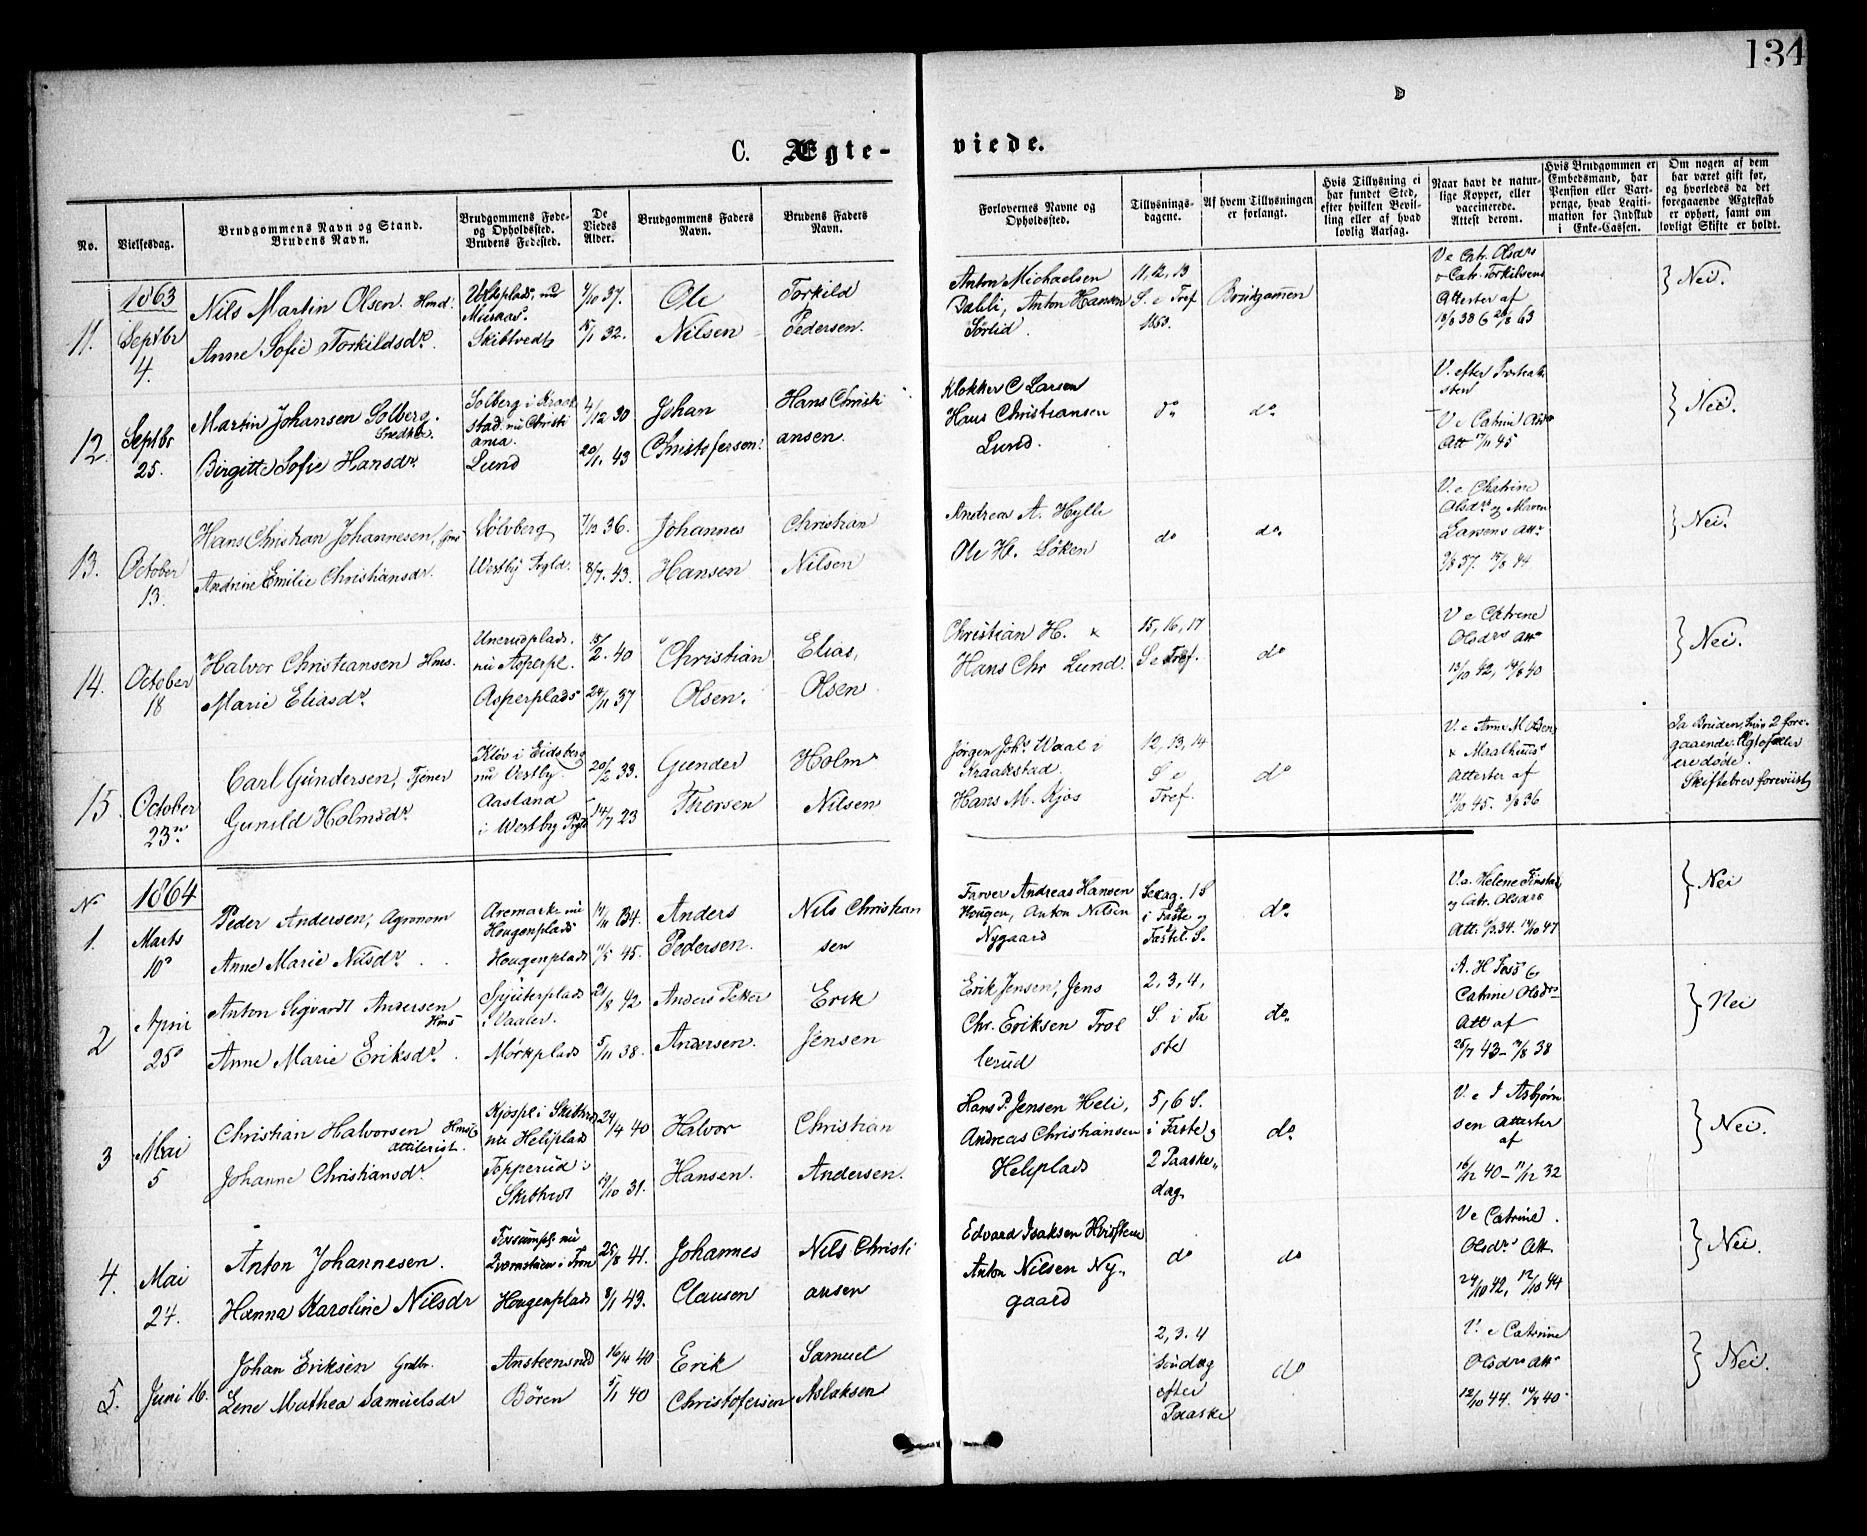 134
C. Ægte-
viede.
No.
Vielsesdag.
Brudgommens Navn og Stand.
Brudens Navn.
Brudgommens Føde-
og Opholdssted.
Brudens Fødested.
De
Viedes
Alder.
Brudgommens Faders
Navn.
Brudens Faders
Navn.
Forlovernes Navne og
Opholdssted.
Tillysnings-
dagene.
Af hvem Tillysningen
er forlangt.
Hvis Tillysning ei
har fundet Sted,
efter hvilken Bevil-
ling eller af hvad
lovlig Aarsag.
Naar havt de natur-
lige Kopper, eller
vaccinerede.
Attest derom.
Hvis Brudgommen er
Embedsmand, har
Pension eller Vart-
penge, hvad Legiti-
mation for Indskud
i Enke-Cassen.
Om nogen af dem
har været gift før,
og hvorledes da det
foregaaende Ægteskab
er ophørt, samt om
lovligt Skifte er holdt.
1863
11. Septbr 4.
Nils Martin Olsen. Hmd:
Anne Sofie Torkildsdr.
Skibtvedt
4/10 37.
15/1 32.
Ole
Nilsen
Torkild
Pedersen.
Anton Michaelsen
Dahli, Anton Hansen
Sørlid.
11, 12, 13
S. e Tref
1863.
Brudgommen
V e Catr. Olsdrs
& Catr. Torkilsens
Attester af
Nei.
12. Septbr 25.
Martin Johansen Solberg.
Snedker.
Birgitte Sofie Hansdr.
Solberg i Kraak
stad. nu Christi
ania.
Lund
4/12 30
20/1. 43
Johan
Christofersen.
Hans Christi
ansen.
Klokker C Larsen
Hans Christiansen
Lund.
do
do
V e Catrine Olsdr
Att 17/11 45
Nei.
13. October 13.
Hans Christian Johannesen, Gms
Andrine Emilie Christiansdr.
Sølvberg
Westby Prgld.
7/12 36.
8/7. 43.
Johannes
Hansen
Christian
Nilsen
Andreas A. Hylli
Ole H. Løken
do
do
V. e Chatrine
Olsdrs og Maren
Larsens Attr
Nei.
14. October 18
Halvor Christiansen Hms.
Marie Eliasdr.
Unerudplads.
nu Asperpl.
Asperplads
15/2. 40
24/11 37
Christian
Olsen.
Elias,
Olsen
Christian H.
Hans Chr Lund.
15, 16, 17
S e Tref.
do
V e Catrene
Olsdrs Attr
13/10 42, 14/8 40
Nei.
15. October 23
Carl Gundersen, Tjener
Gunild Holmsdr.
Kløv i Eidsberg
nu Vestby.
Aasland
i Westby Prgld
20/2 33.
14/7 23
Gunder
Thorsen
Holm
Nilsen
Jørgen Johs Waal i
Kraakstad.
Hans M. Kjos
12, 13, 14
S e
Tref.
do
V. e Anne M Olsens
Attester af
11/10 45. 9/8 36
Ja Bruden, hvis 2 fore-
gaaende Ægtefæller
ere døde.
Skiftebrev foreviist
1864
N
1. Marts 10
Peder Andersen, Agronom
Anne Marie Nilsdr.
Aremark nu
Hougenplads
Hougenplads
11/5 45.
Anders
Pedersen.
Nils Christian
sen
Farver Andreas Hansen
Hougen, Anton Nilsen
Nygaard
Sexag. 1 S
i Faste og
Fastel. S.
do
V. e. Helene Finstad
og Catr. Olsdrs
Nei
2 April 25
Anton Sigvardt Andersen
Hms
Anne Marie Eriksdr.
Spjuterplads
i Vaaler.
Mørkplads
21/8 42
5/11 38.
Anders Petter
Andersen.
Erik
Jensen
Erik Jensen, Jens
Chr. Eriksen Trol
lerud
2, 3, 4,
S. i Fa
ste
do.
A. H Foss &
Catrine Olsdrs
Att af
25/7 43 – 9/8 38
Nei
3 Mai 5
Christian Halvorsen Hms &
Attilerist.
Johanne Christiansdr.
Kjospl i Skibtved
nu Heliplads
Topperud i
Skibtvedt
24/4 40
19/10 31.
Halvor
Hansen.
Christian
Andersen.
Hans P. Jensen Heli,
Andreas Christiansen
Heliplads
5, 6 S.
i Faste og
2 Paaske
dag
do.
V. e J Asbjørn
sen Attester
af
16/12 40 – 11/12 32
Nei.
4. Mai 24.
Anton Johannesen.
Hanna Karoline Nilsdr
Hougenplads
25/8 41.
8/1 43.
Johannes
Clausen
Nils Christi
ansen
Edvard Isaksen Hvidsteen
Anton Nilsen Ny-
gaard
do
do
V e Catrine.
Olsdrs Att.
24/10 42, 12/10 44
Nei.
5. Juni 16.
Johan Eriksen Grdbr.
Lene Mathea Samuelsdr
Ansteensrud
Børen
16/4 40
5/1 40
Erik
Christofersen
Samuel
Aslaksen
2, 3. 4
Søndag
efter
Paaske
do
V. e Catrine
Olsdrs Attr
12/10 44. 14/8 40
Nei.